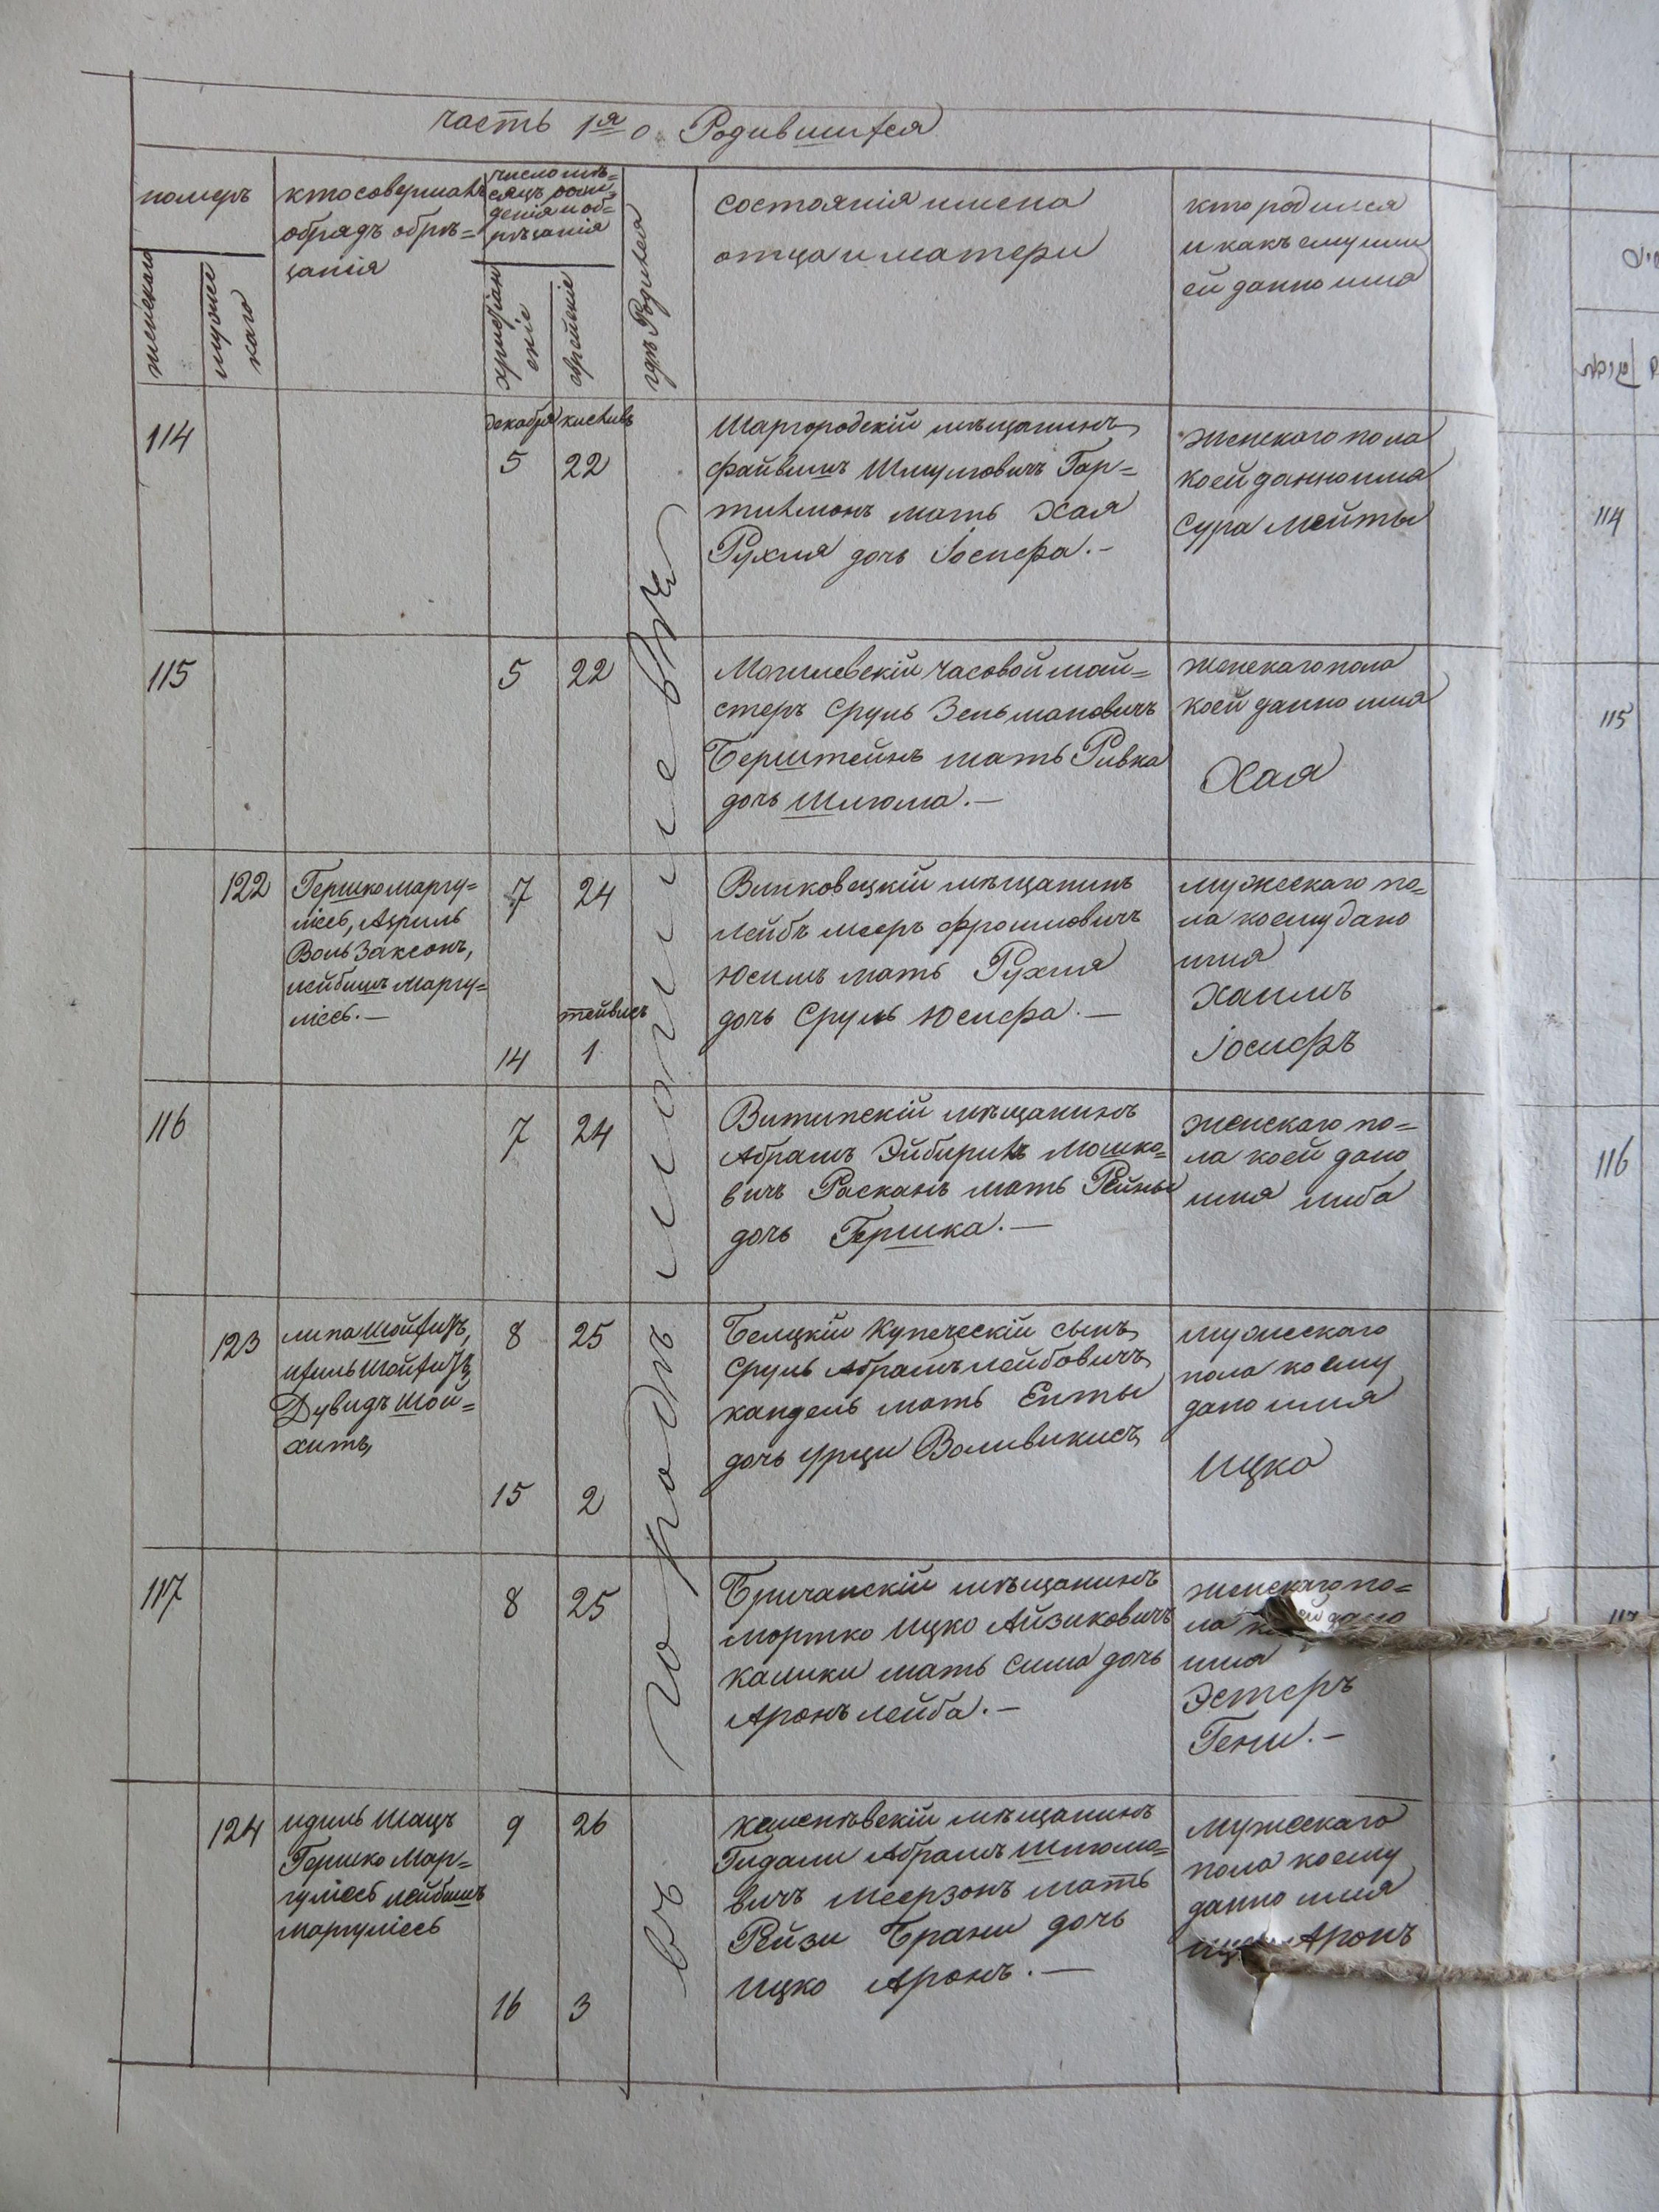 часть 1я о Родившихся
номеръ
женскаго
мужес
каго
кто совершалъ
обрядъ обрѣ=
зания
число мѣ=
сяцъ рож
денія и об=
рѣзанія
христіан
скіе
еврейскіе
гдѣ Родился
состоянія имена
отца и матери
кто родился
и какъ ему или
ей данно имя
114
декабря
5
кисливъ
22
Шаргородскій мѣщанинъ
Файвишъ Шмулювичъ Гар=
тихмонъ мать Хая
Рухля дочь Іосифа.-
Женскаго пола
коей данно имя
Сура Мейты
115
5
22
Могилевскій часовой май=
стеръ Сруль Зельмановичъ
Берштейнъ мать Ривка
дочь Шлюма.-
женскаго пола
коей данно имя
Хая
122
Гершко маргу=
лісъ, Азриль
Воль Заксонъ,
лейбишъ маргу=
лісъ.-
7
24
тейвисъ
14
1
Виньковецкій мѣщанинъ
Лейбъ мееръ Фроимовичъ
Юсимъ мать Рухля
дочь Сруль Юсифа.-
мужескаго по=
ла коему дано
имя
Хаимъ
Іосифъ
116
7
24
Абрамъ
мать Рейны
дочь Гершка.-
женскаго по=
ла коей дано
имя либа
123
липа Шойхитъ,
Дувидъ Шой=
хитъ,
8
25
15
2
Белцкій Купеческій сынъ
Сруль Абрамъ лейбовичъ
кандель мать Енты
дочь
мужескаго
пола коему
дано имя
Ицко
117
8
25
Бричанскій мѣщанинъ
мортко Ицко Айзиковичъ
Калики мать Сима дочь
Аронъ лейба.-
женскаго по=
ла коей дано
имя
Эстеръ
Гени.-
124
идиль Шацъ
Гершко Мар=
гуліесъ лейбишъ
маргуліесъ
9
26
16
3
мѣщанинъ
Гидали Абрамъ Шлюмо=
вичъ Меерзонъ мать
Рейзи Брани дочь
Ицко Аронъ.-
мужескаго
пола коему
данно имя
Ицко Аронъ
въ городѣ могилевѣ
114
115
116
117